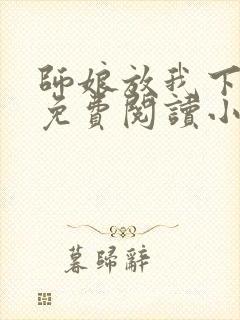 師娘放我下
免費閱讀小
暮歸辭